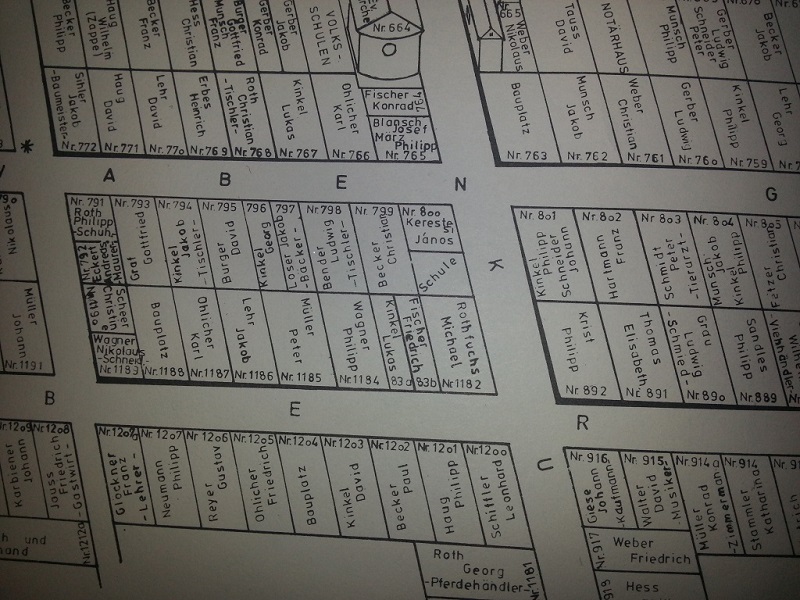 Becker
Philipp
Haug
Wilhelm
(Zappel)
Becker
Franz
Hess
Christian
Burger
Gottfried
Munsch
Franz
Gerber
Konrad
Gerber
Jakob
VOLKS-
SCHULEN
Nr.664
Fischer
Konrad
Blaasch
Josef
März
Philipp
Nr.765
Sihler
Jakob
-Baumeister-
Nr.772
Haug
David
Nr.771
Lehr
David
Nr.770
Erbes
Heinrich
Nr.769
Roth
Christian
-Tischler-
Nr.768
Kinkel
Lukas
Nr.767
Ohlicher
Karl
Nr.766
665
Weber
Nikolaus
Tauss
David
NOTÄRHAUS
Munsch
Philipp
Gerber
Ludwig
Schneider
Peter
Becker
Jakob
Bauplatz
Nr.763
Munsch
Jakob
Nr.762
Weber
Christian
Nr.761
Gerber
Ludwig
Nr.760
Kinkel
Philipp
Nr.759
Lehr
Georg
*
A
B
E
N
G
K
Nr.791
Roth
Philipp
-Schuh-
Nr.792
Eckert
Andreas
-Maurer-
Nr.793
Graf
Gottfried
Nr.794
Kinkel
Jakob
-Tischler-
Nr.795
Burger
David
796
Kinkel
Georg
797
Loser Jakob
-Bäcker-
Nr.798
Bender
Ludwig
-Tischler-
Nr.799
Becker
Christian
Nr.800
Kereste
si
János
Schule
Nr.1190
Scheer
Christine
Wagner
Nikolaus
-Schneid.-
Nr.1189
Bauplatz
Nr.1188
Ohlicher
Karl
Nr.1187
Lehr
Jakob
Nr.1186
Müller
Peter
Nr.1185
Wagner
Philipp
Nr.1184
Kinkel
Lukas
83a
Fischer
Friedrich
83b
Rothfuchs
Michael
Nr.1182
Nikolaus
Müller
Johann
Nr.1191
Nr.801
Kinkel
Philipp
Schneider
Johann
Nr.802
Hartmann
Franz
Nr.803
Schmidt
Peter
-Tierarzt-
Nr.804
Munsch
Jakob
Kinkel
Philipp
Nr.805
Fetzer
Christian
Krist
Philipp
Nr.892
Thomas
Elisabeth
Nr.891
Grau
Ludwig
-Schmied-
Nr.890
Sandles
Philipp
Nr.889
-Viehhändler-
B
E
R
U
Nr.1209
Karbiener
Johann
Nr.1208
Jauss
Friedrich
-Gastwirt-
Nr.1212a
und
Glöckner
Franz
-Lehrer-
Nr.1207
Neumann
Philipp
Nr.1206
Reyer
Gustav
Nr.1205
Ohlicher
Friedrich
Nr.1204
Bauplatz
Nr.1203
Kinkel
David
Nr.1202
Becker
Paul
Nr.1201
Haug
Philipp
Nr.1200
Schittler
Leonhard
Roth
Georg
-Pferdehändler-
Nr.1181
Nr.916
Giese
Johann
-Kaufmann-
Nr.915
Walter
David
-Musiker-
Nr.914a
Müller
Konrad
-Zimmermann-
Nr.914
Stammler
Katharina
Nr.917
Weber
Friedrich
918
Hess